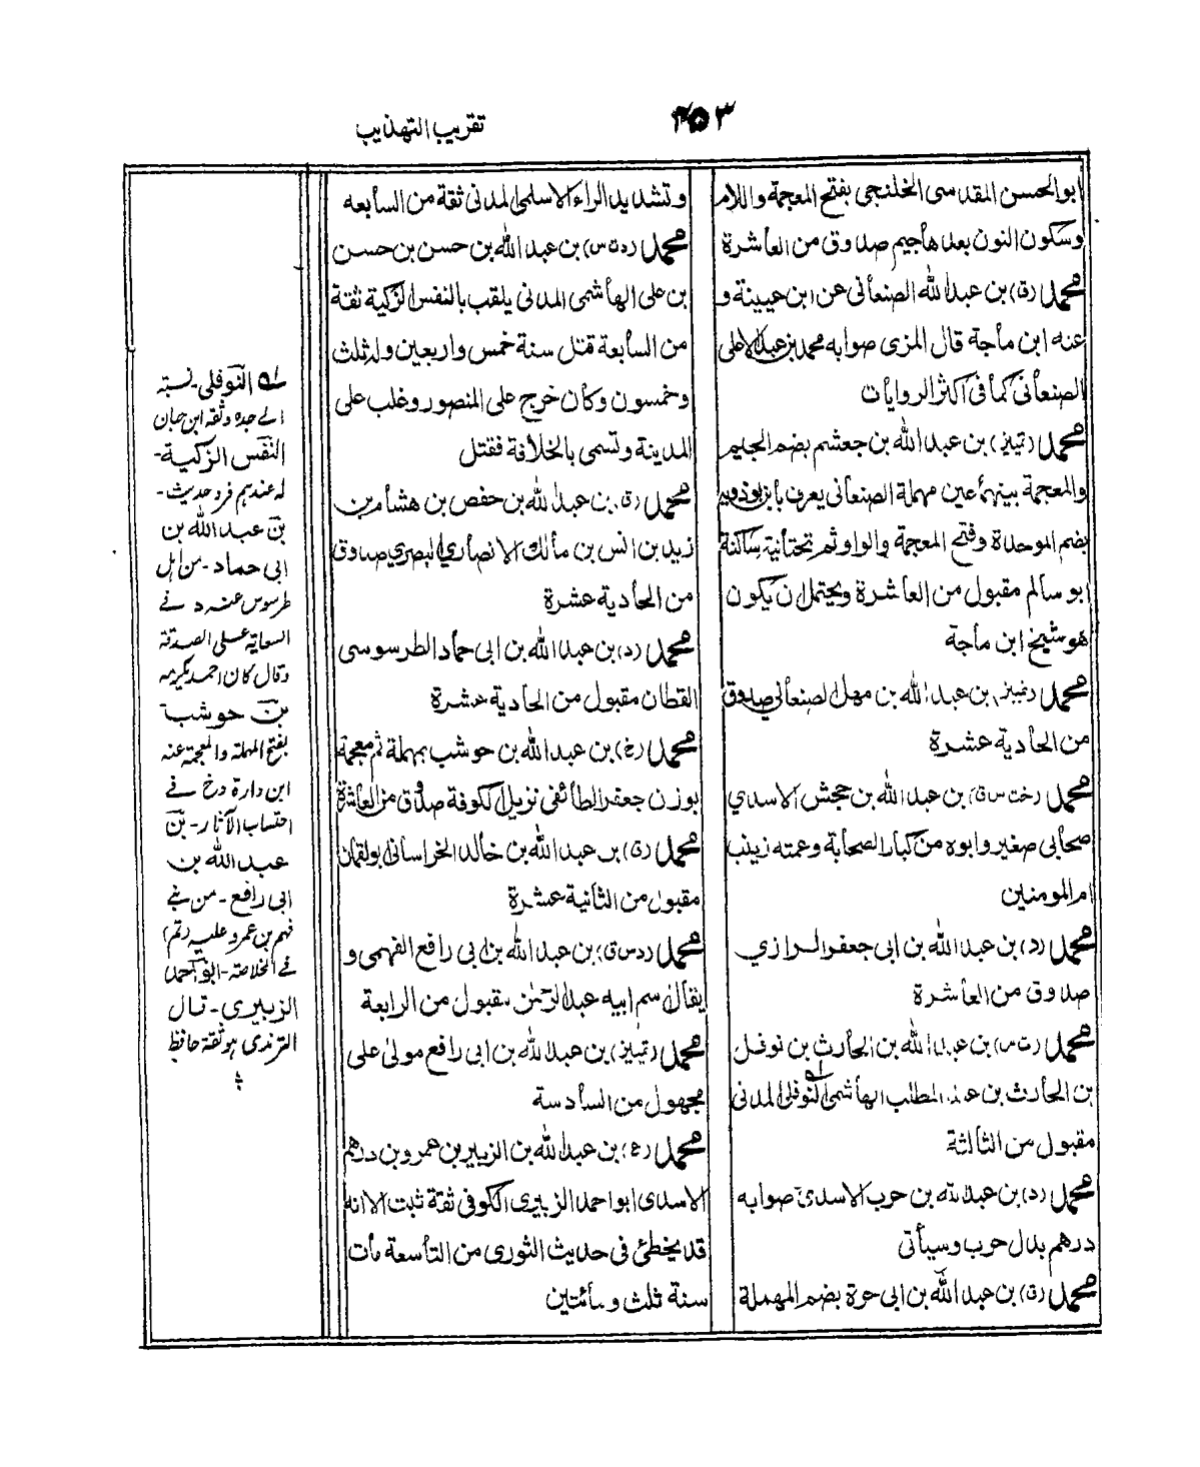 ٤٥٣
تقريب التهذيب
ابو الحسن المقدسى الخلنجى بفتح المعجمة واللام
وسكون النون بعدها جيم صدوق من العاشرة
محمد (ق) بن عبد الله الصنعانى عن ابن عيينة و
عنه ابن ماجة قال المزى صوابه محمد بن عبد الاعلى
الصنعانى كما فى اكثر الروايات
محمد (تمييز) بن عبد الله بن جعشم بضم الجيم
والمعجمة بينهما عين مهملة الصنعانى يعرف بابن بوذويه
بضم الموحدة وفتح المعجمة والواو ثم تحتانية ساكنة
ابو سالم مقبول من العاشرة ويحتمل ان يكون
هو شيخ ابن ماجة
محمد (تمييز) بن عبد الله بن مهل الصنعانى صدوق
من الحادية عشرة
محمد (خت س ق) بن عبد الله بن جحش الاسدي
صحابى صغير وابوه من كبار الصحابة وعمته زينب
ام المومنين
محمد (د) بن عبد الله بن ابى جعفر الرازي
صدوق من العاشرة
محمد (ت س) بن عبد الله بن الحارث بن نوفل
بن الحارث بن عبد المطلب الهاشمى النوفلى المدنى
مقبول من الثالثة
محمد (د) بن عبد الله بن حرب الاسدى صوابه
درهم بدل حرب وسيأتى
محمد (ق) بن عبد الله بن ابى حرة بضم المهملة
وتشديد الراء الاسلمى المدنى ثقة من السابعه
محمد (د ت س) بن عبد الله بن حسن بن حسن
بن على الهاشمى المدنى يلقب بالنفس الزكية ثقة
من السابعة قتل سنة خمس واربعين وله ثلث
وخمسون وكان خرج على المنصور وغلب على
المدينة وتسمى بالخلافة فقتل
محمد (ق) بن عبد الله بن حفص بن هشام بن
زيد بن انس بن مالك الانصاري البصري صدوق
من الحادية عشرة
محمد (د) بن عبد الله بن ابى حماد الطرسوسى
القطان مقبول من الحادية عشرة
محمد (خ) بن عبد الله بن حوشب بمهملة ثم معجمة
بوزن جعفر الطائفى نزيل الكوفة صدوق من العاشرة
محمد (ق) بن عبد الله بن خالد الخراسانى ابو لقمان
مقبول من الثانية عشرة
محمد (د س ق) بن عبد الله بن ابى رافع الفهمى و
يقال اسم ابيه عبد الرحمٰن مقبول من الرابعة
محمد (تمييز) بن عبد الله بن ابى رافع مولىٰ على
مجهول من السادسة
محمد (ع) بن عبد الله بن الزبير بن عمرو بن درهم
الاسدى ابو احمد الزبيرى الكوفى ثقة ثبت الا انه
قد يخطئ فى حديث الثورى من التاسعة مات
سنة ثلث ومائتين
له النوفلى - نسبة
الے جده وثقه ابن حبان
النفس الزكية -
له عندهم فرد حديث -
بن عبد الله بن
ابى حماد - من اهل
طرسوس عنه د فے
السعاية على الصدقة
وقال كان احمد يكرمه
بن حوشب
بفتح المهملة والمعجمة عنه
ابن دارة وخ فے
احتساب الآثار - بن
عبد الله بن
ابى رافع - من بنے
فهم بن عمرو عليه (تم)
فے الخلاصة - ابو احمد
الزبيرى - قال
الترمذى هو ثقة حافظ